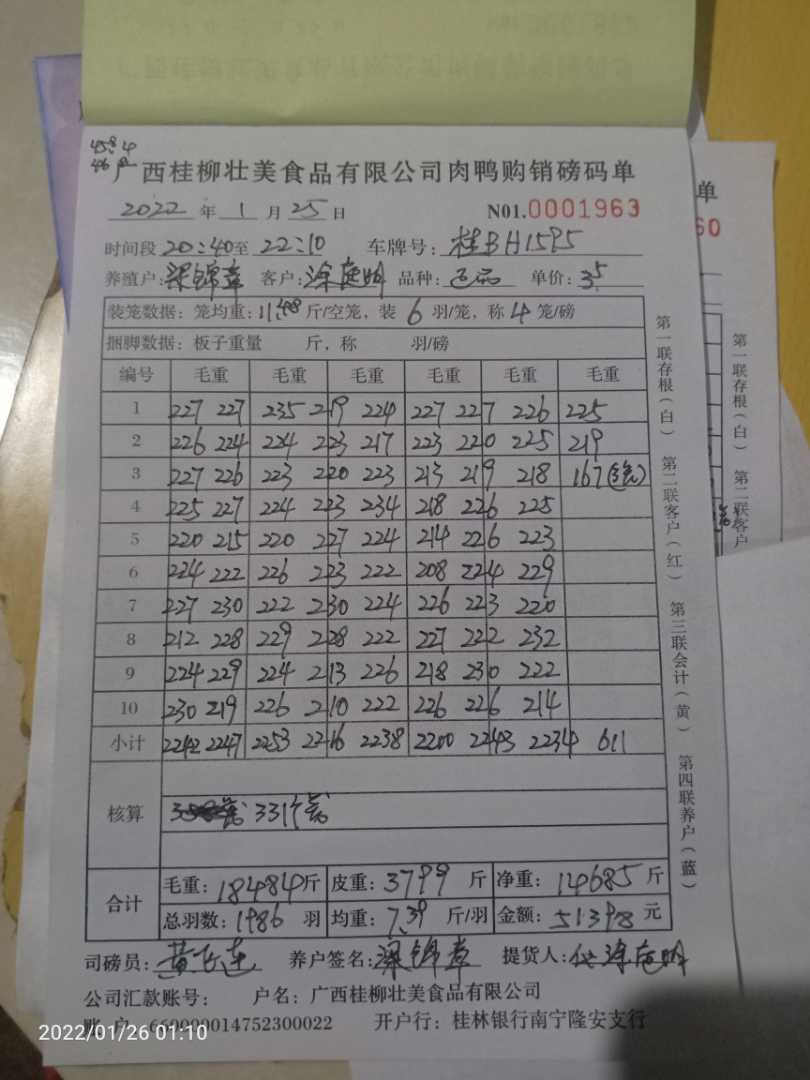 45.9 4
46
广西桂柳壮美食品有限公司肉鸭购销磅码单
2022 年 1 月 25 日 N01.0001963
时间段 20:40 至 22:10 车牌号: 桂BH1595
养殖户: 梁锦章 客户: 涂庭明 品种: 正品 单价: 3.5
装笼数据: 笼均重: 11.48 斤/空笼, 装 6 羽/笼, 称 4 笼/磅
捆脚数据: 板子重量 斤, 称 羽/磅
编号 毛重 毛重 毛重 毛重 毛重 毛重
1 227 227 235 219 224 227 227 226 225
2 226 224 224 223 217 223 220 225 219
3 227 226 223 220 223 213 219 218 167(3笼)
4 225 227 224 223 234 218 226 225
5 220 215 220 227 224 214 226 223
6 224 222 226 223 222 208 224 229
7 227 230 222 230 224 226 223 220
8 212 228 229 228 222 227 222 232
9 224 229 224 213 226 218 230 222
10 230 219 226 210 222 226 226 214
小计 2242 2247 2253 2216 2238 2200 2243 2234 611
核算 331个笼
合计 毛重: 18484 斤 皮重: 3799 斤 净重: 14685 斤
总羽数: 1986 羽 均重: 7.39 斤/羽 金额: 51398 元
司磅员: 养户签名: 梁锦章 提货人: 涂庭明
公司汇款账号: 户名: 广西桂柳壮美食品有限公司
账 户 660000014752300022 开户行: 桂林银行南宁隆安支行
第一联存根(白) 第二联客户(红) 第三联会计(黄) 第四联养户(蓝)
单
60
第一联存根(白) 第二联客户
2022/01/26 01:10